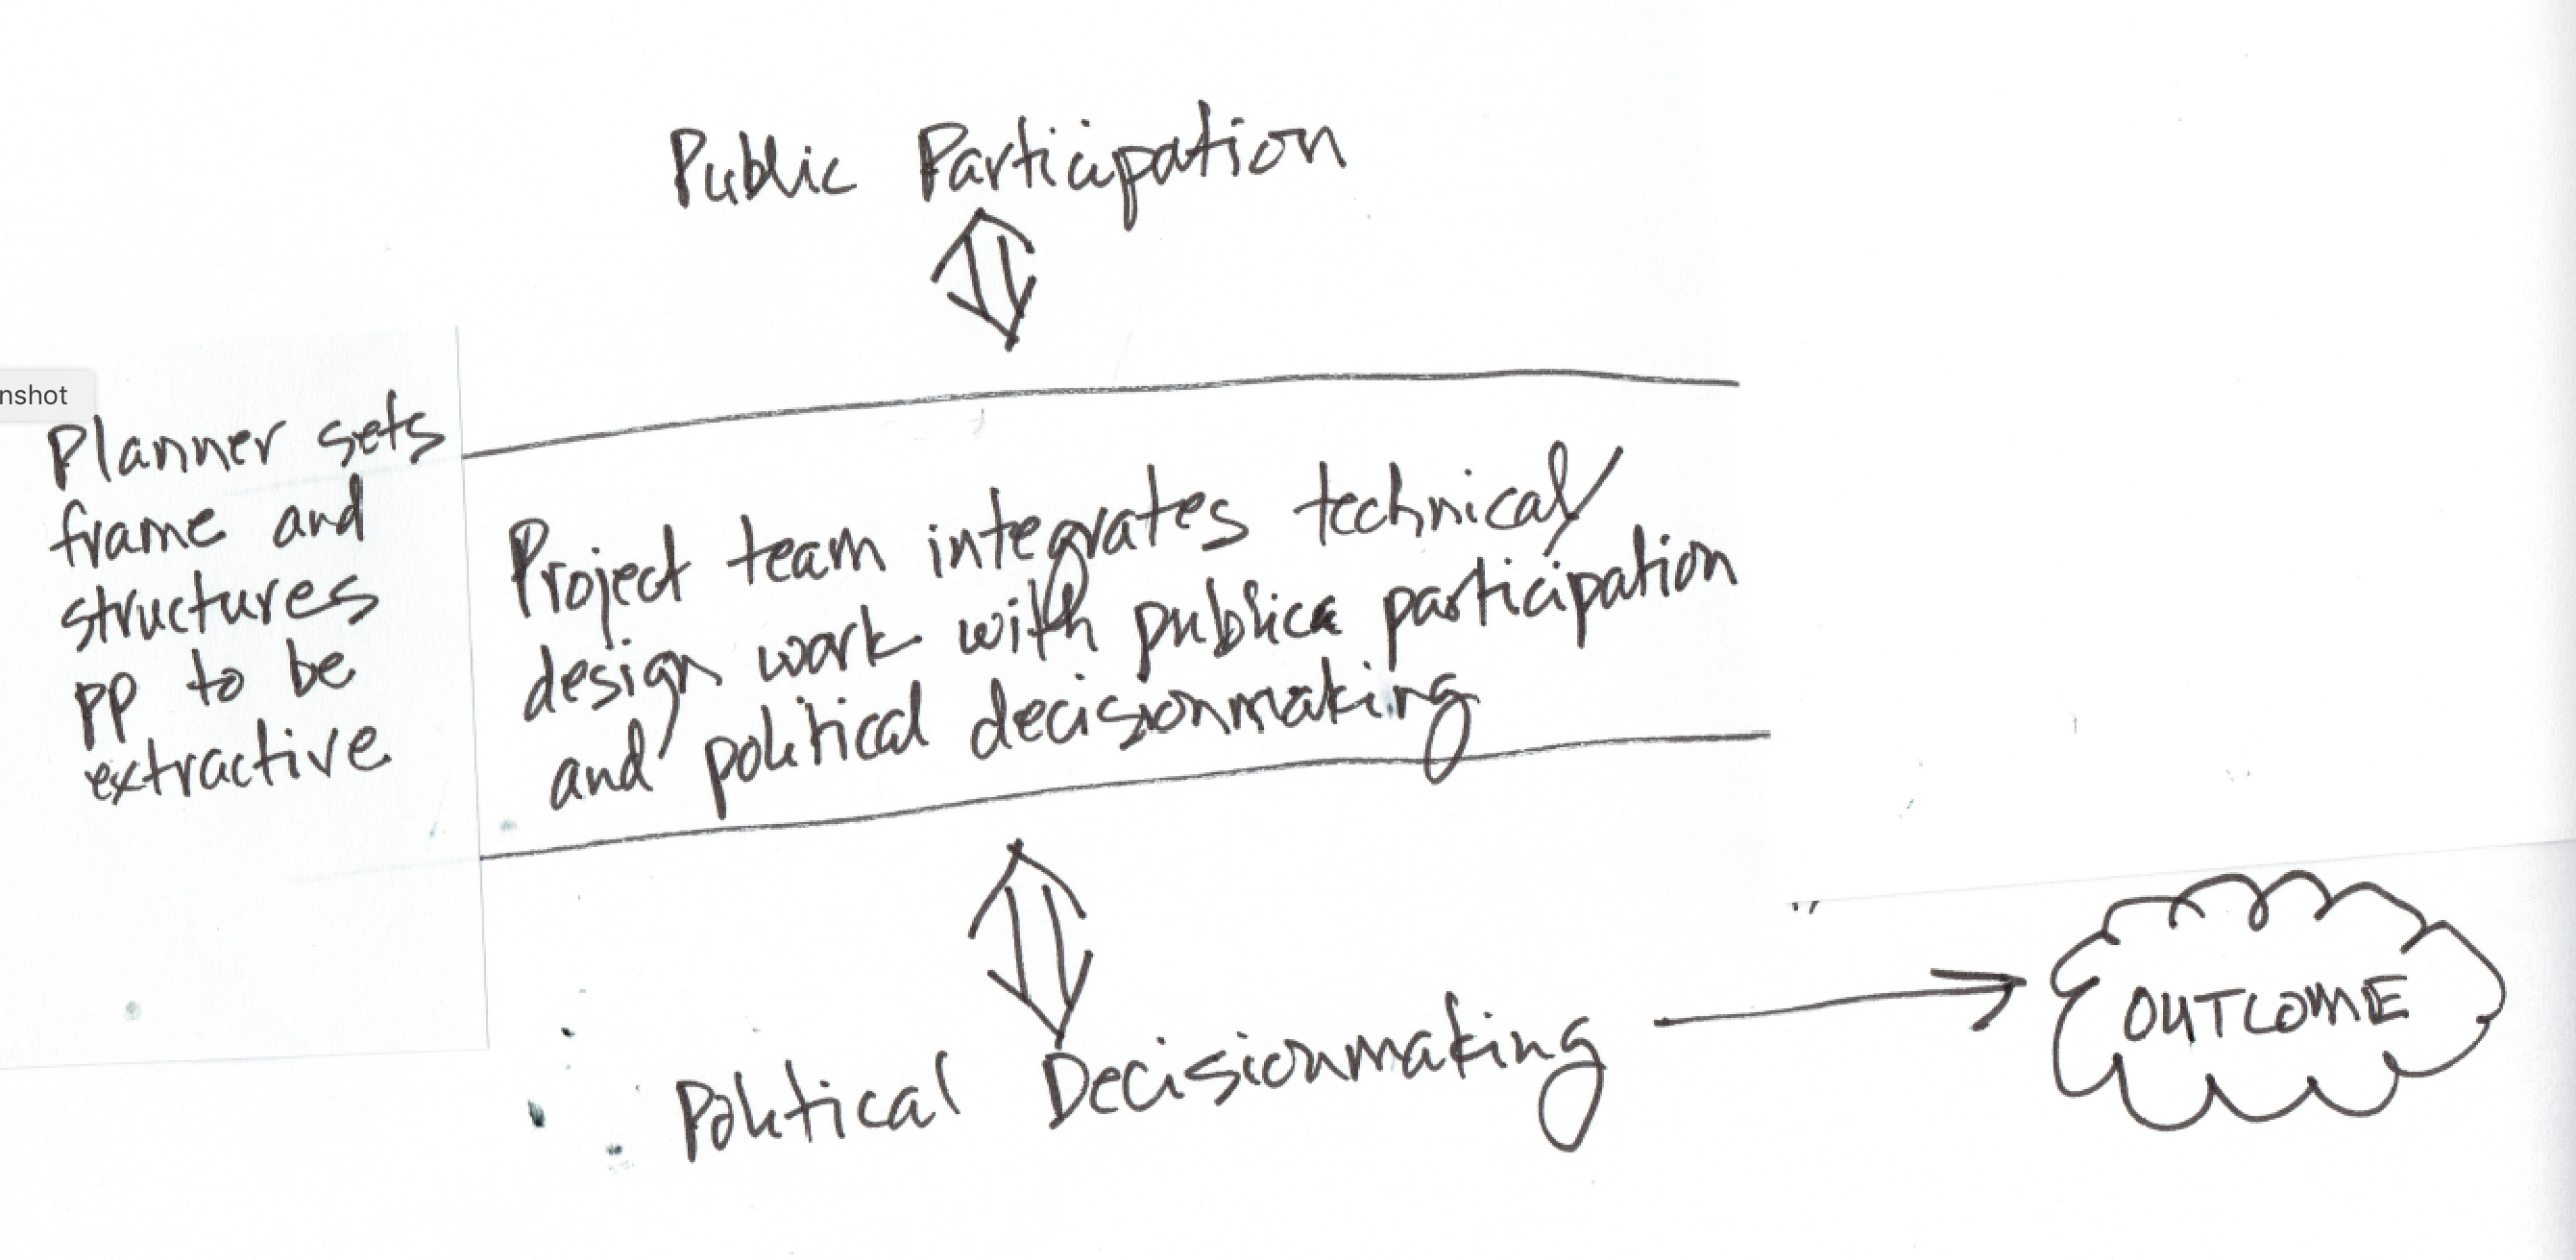 Public Participation
nshot
Planner sets
frame and
structures
pp to be
extractive
Project team integrates technical/
design work with publica participation
and political decisionmaking
Political Decisionmaking
OUTCOME